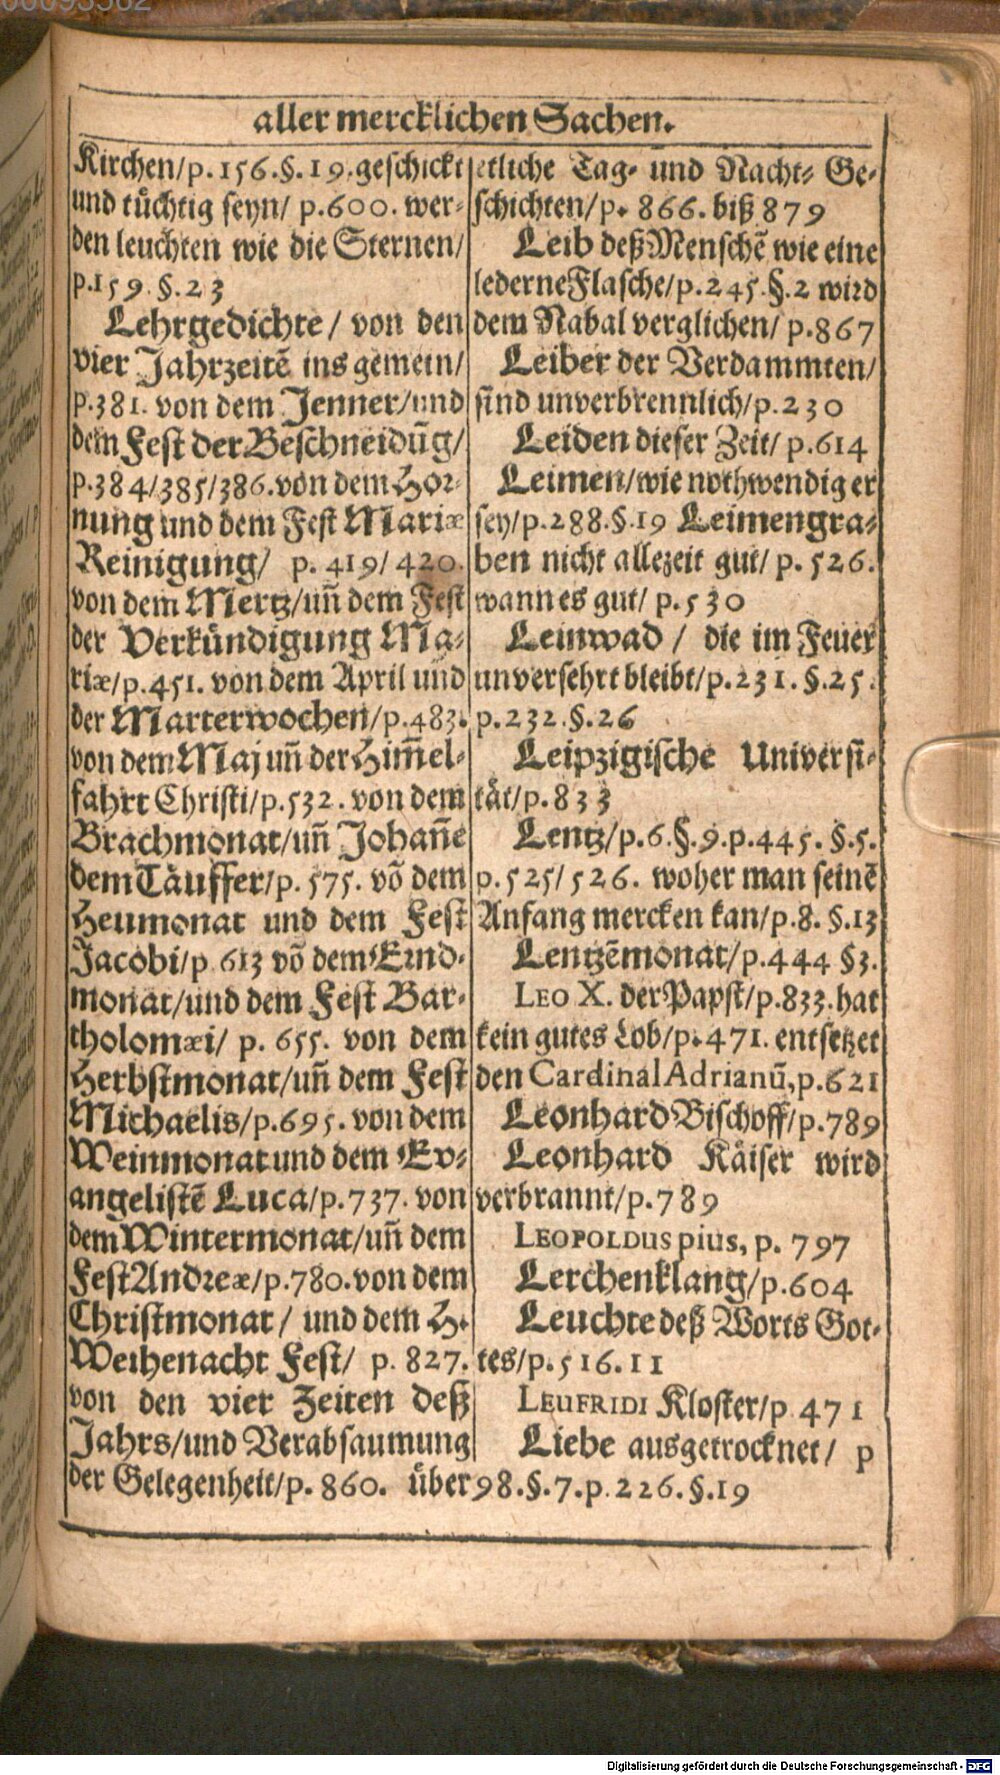 aller mercklichen Sachen.
Kirchen/p.156.§.19.geschickt
und tüchtig seyn/ p.600. wer-
den leuchten wie die Sternen/
p.159.§.23
Lehrgedichte / von den
vier Jahrzeitē ins gemein/
p.381. von dem Jenner/und
dem Fest der Beschneidūg/
p.384/385/386.von dem Hor-
nung und dem Fest Mariæ
Reinigung/ p. 419/ 420.
von dem Mertz/uñ dem Fest
der Verkündigung Ma-
riæ/p.451. von dem April und
der Marterwochen/p.483.
von dem Maj uñ der Him̄el-
fahrt Christi/p.532. von dem
Brachmonat/uñ Johañe
dem Täuffer/p. 575. võ dem
Heumonat und dem Fest
Jacobi/p 613 võ dem Ernd-
monat/und dem Fest Bar-
tholomæi/ p. 655. von dem
Herbstmonat/uñ dem Fest
Michaelis/p.695. von dem
Weinmonat und dem Ev-
angelistē Luca/p.737. von
dem Wintermonat/uñ dem
Fest Andreæ/p.780.von dem
Christmonat / und dem H.
Weihenacht Fest/ p. 827.
von den vier Zeiten deß
Jahrs/und Verabsaumung
der Gelegenheit/p. 860. über
etliche Tag- und Nacht- Ge-
schichten/p. 866. biß 879
Leib deß Menschē wie eine
lederne Flasche/p.245.§.2 wird
dem Nabal verglichen/ p.867
Leiber der Verdammten/
sind unverbrennlich/p.230
Leiden dieser Zeit/ p.614
Leimen/wie nothwendig er
sey/p.288.§.19 Leimengra-
ben nicht allezeit gut/ p. 526.
wann es gut/ p.530
Leinwad / die im Feuer
unversehrt bleibt/p.231. §.25.
p.232.§.26
Leipzigische Universi-
tät/p.833
Lentz/p.6.§.9.p.445. §.5.
p.525/526. woher man seinē
Anfang mercken kan/p.8. §.13
Lentzēmonat/p.444 §3.
LEO X. der Papst/p.833.hat
kein gutes Lob/p.471. entsetzet
den Cardinal Adrianū,p.621
Leonhard Bischoff/p.789
Leonhard Käiser wird
verbrannt/p.789
LEOPOLDUS pius, p. 797
Lerchenklang/p.604
Leuchte deß Worts Got-
tes/p.516.11
LEUFRIDI Kloster/p 471
Liebe ausgetrocknet/ p
98.§.7.p.226.§.19
Digitalisierung gefördert durch die Deutsche Forschungsgemeinschaft - DFG